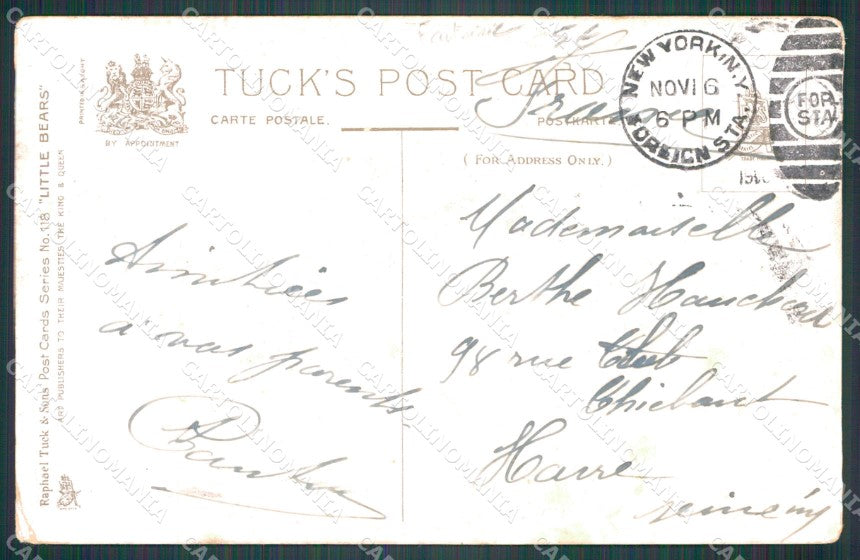 Raphael Tuck & Sons' Post Cards Series No. 118 "LITTLE BEARS"
ART PUBLISHERS TO THEIR MAJESTIES THE KING & QUEEN
PRINTED IN SAXONY
BY APPOINTMENT
TUCK'S POST CARD
CARTE POSTALE.
POSTKARTE
(FOR ADDRESS ONLY.)
France
NEW YORK, N.Y.
NOV 16
6 PM
FOREIGN STA.
FOR.
STA.
Amitiées
a vos parents
Mademoiselle
Berthe
98 rue
Thiebaut
Havre
CARTOLINOMANIA